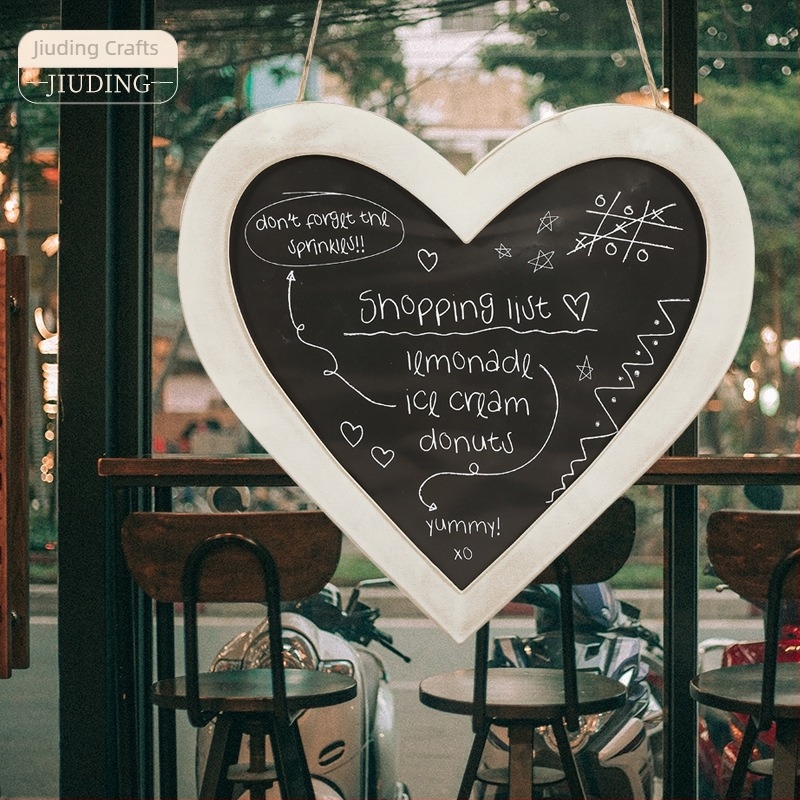 Jiuding Crafts
JIUDING
don't forget the
sprinkles!!
Shopping list
lemonade
ice cream
donuts
yummy!
xo